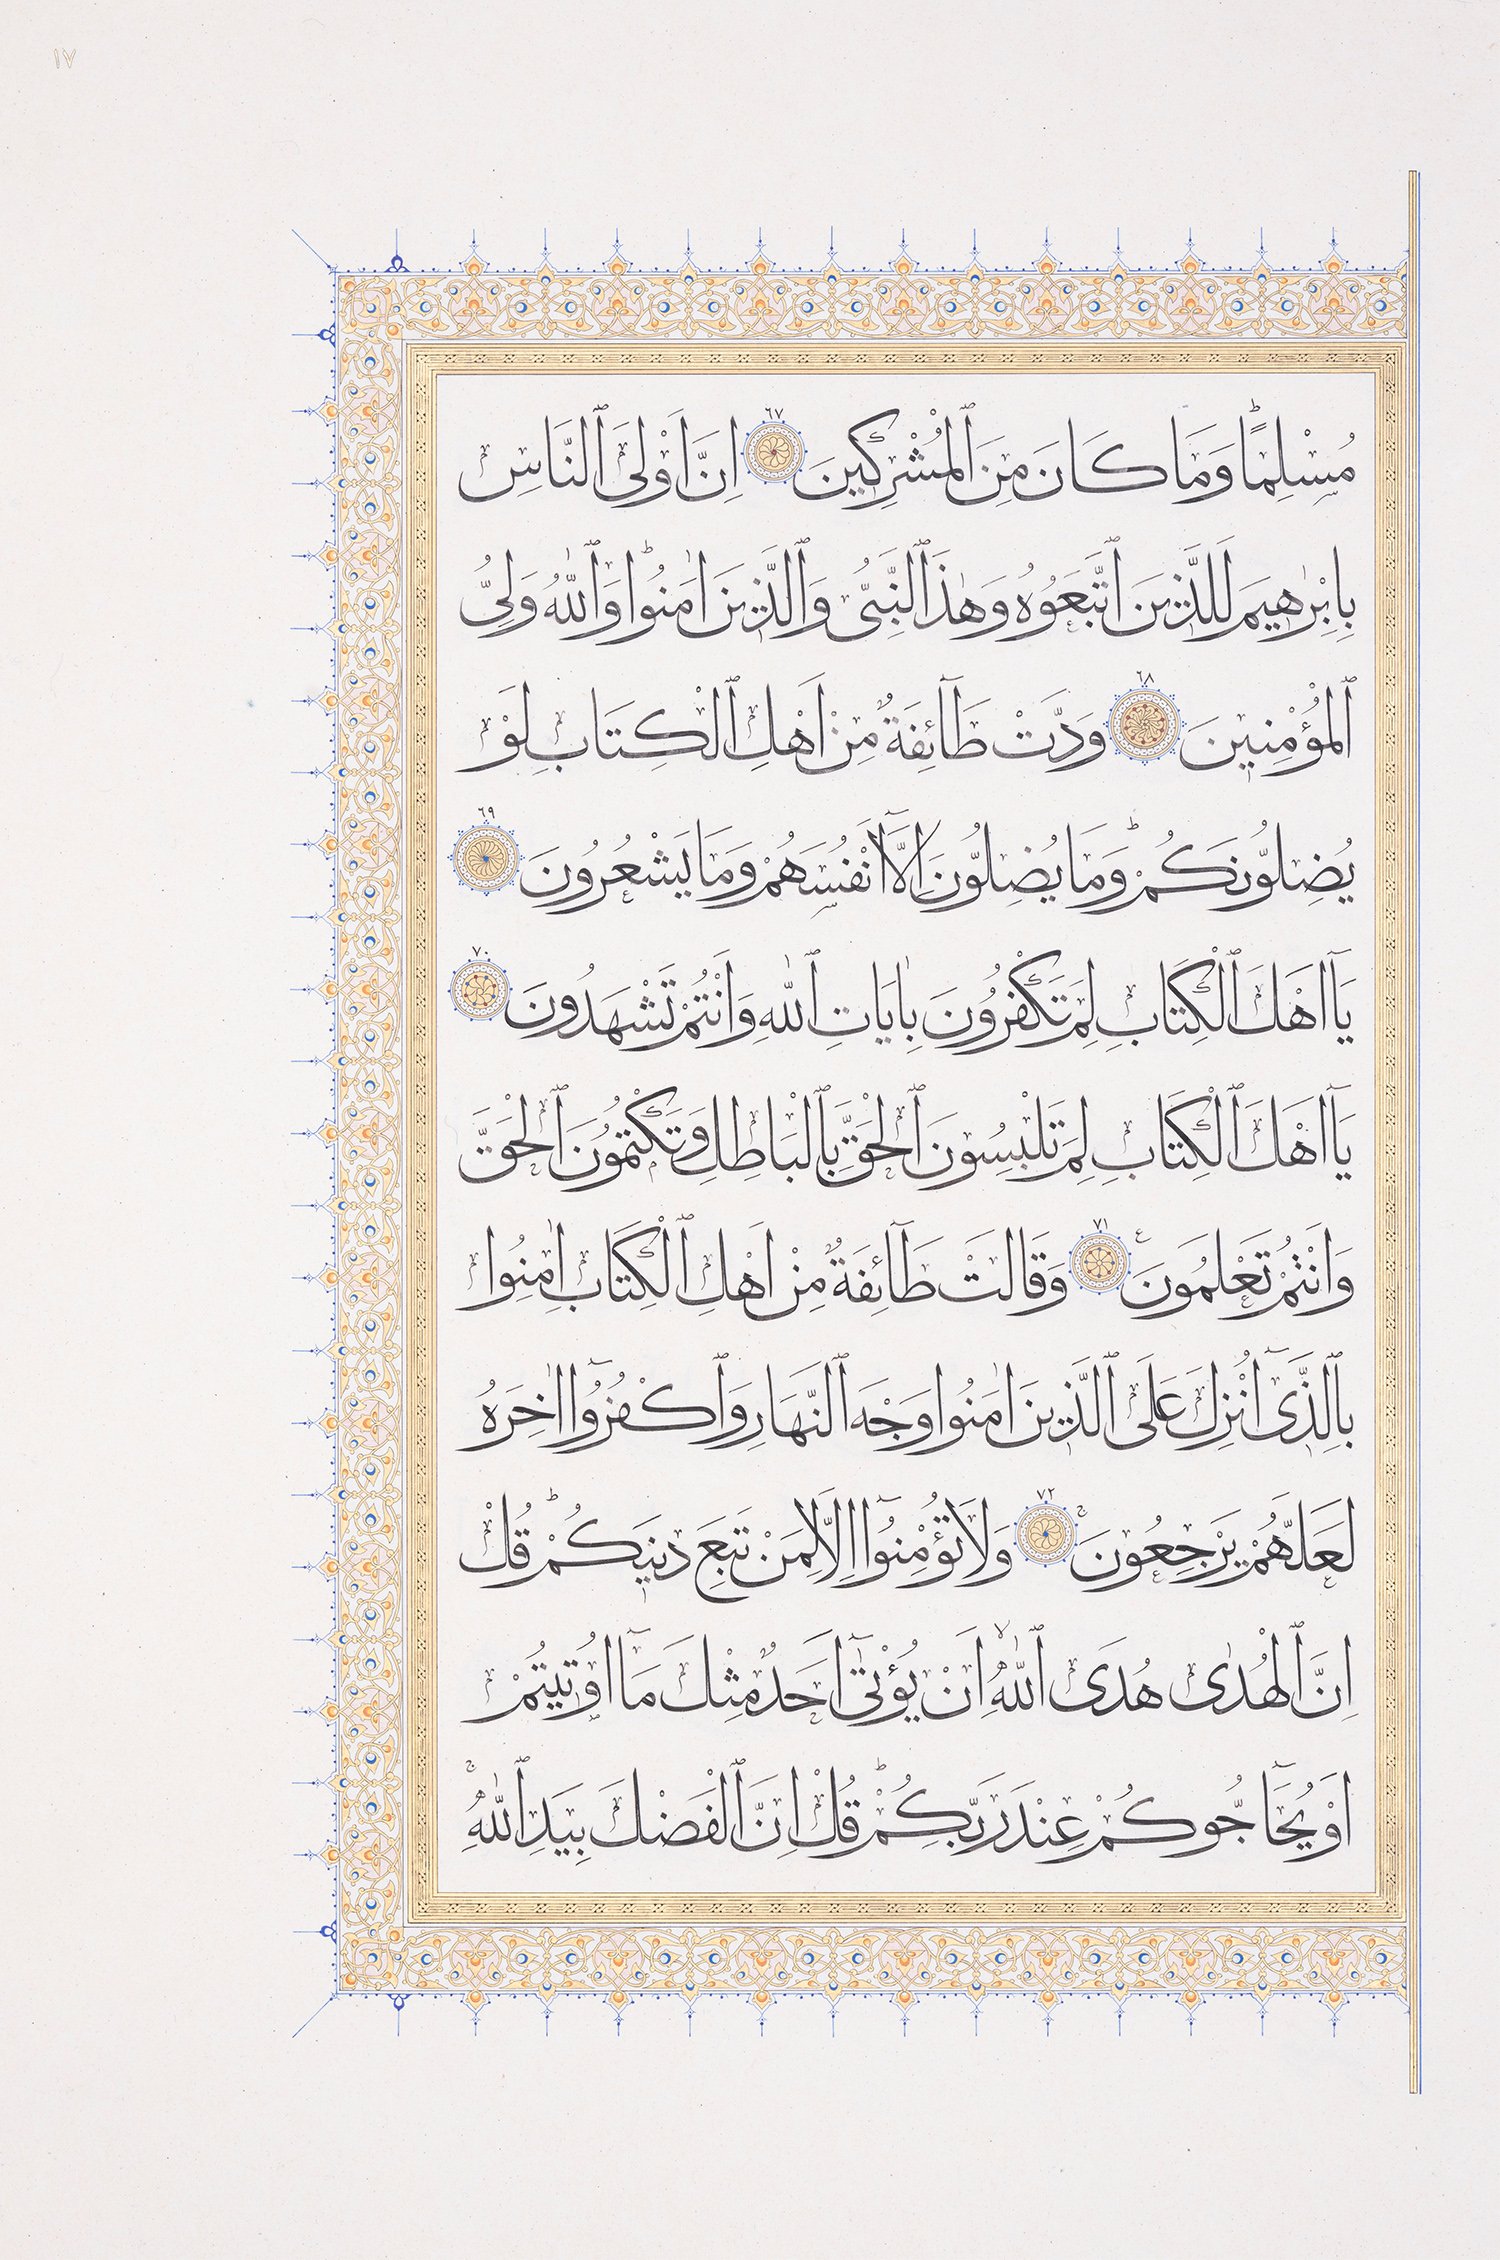 ١٧
مُسْلِمًاۜ وَمَا كَانَ مِنَ الْمُشْرِكٖينَ ٦٧ اِنَّ اَوْلَى النَّاسِ
بِاِبْرٰهٖيمَ لَلَّذٖينَ اتَّبَعُوهُ وَهٰذَا النَّبِىُّ وَالَّذٖينَ اٰمَنُواۜ وَاللّٰهُ وَلِىُّ
الْمُؤْمِنٖينَ ٦٨ وَدَّتْ طَٓائِفَةٌ مِنْ اَهْلِ الْكِتَابِ لَوْ
يُضِلُّونَكُمْۜ وَمَا يُضِلُّونَ اِلَّٓا اَنْفُسَهُمْ وَمَا يَشْعُرُونَ ٦٩
يَٓا اَهْلَ الْكِتَابِ لِمَ تَكْفُرُونَ بِاٰيَاتِ اللّٰهِ وَاَنْتُمْ تَشْهَدُونَ ٧٠
يَٓا اَهْلَ الْكِتَابِ لِمَ تَلْبِسُونَ الْحَقَّ بِالْبَاطِلِ وَتَكْتُمُونَ الْحَقَّ
وَاَنْتُمْ تَعْلَمُونَ ع ٧١ وَقَالَتْ طَٓائِفَةٌ مِنْ اَهْلِ الْكِتَابِ اٰمِنُوا
بِالَّذٖٓى اُنْزِلَ عَلَى الَّذٖينَ اٰمَنُوا وَجْهَ النَّهَارِ وَاكْفُرُٓوا اٰخِرَهُ
لَعَلَّهُمْ يَرْجِعُونَۚ ٧٢ وَلَا تُؤْمِنُٓوا اِلَّا لِمَنْ تَبِعَ دٖينَكُمْۜ قُلْ
اِنَّ الْهُدٰى هُدَى اللّٰهِۙ اَنْ يُؤْتٰٓى اَحَدٌ مِثْلَ مَٓا اُو۫تٖيتُمْ
اَوْ يُحَٓاجُّوكُمْ عِنْدَ رَبِّكُمْۜ قُلْ اِنَّ الْفَضْلَ بِيَدِ اللّٰهِۚ